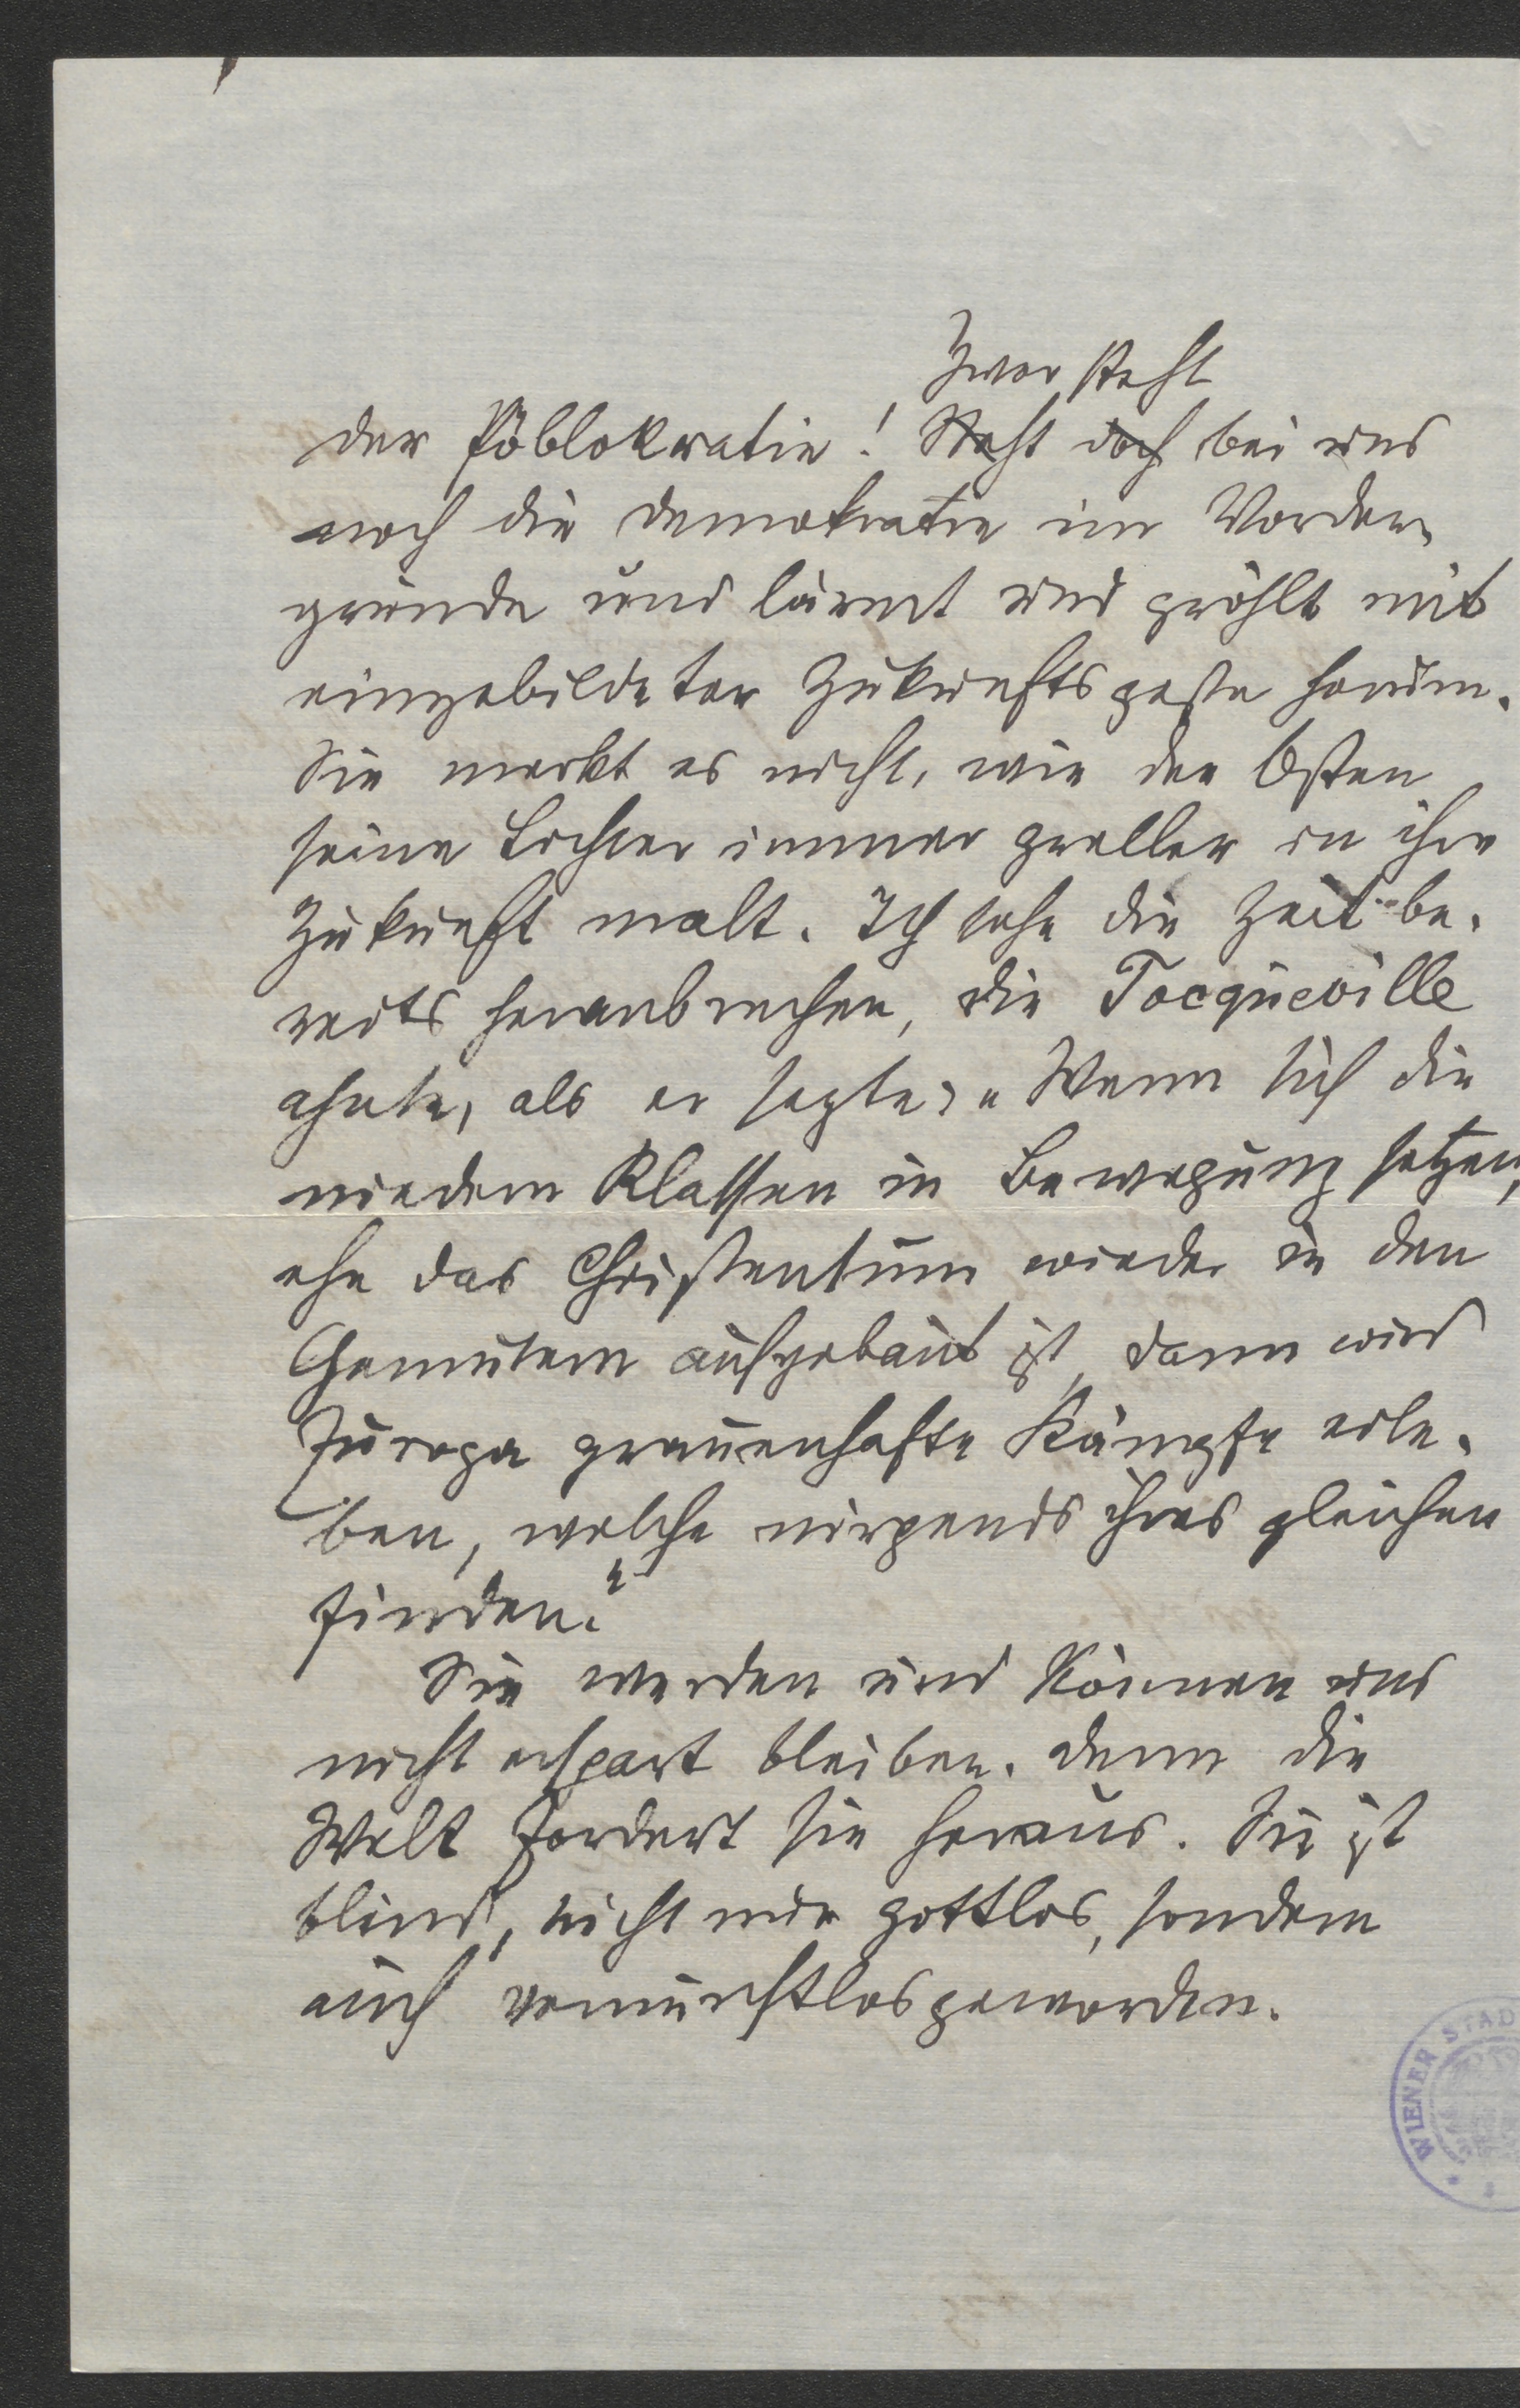 Zwar steht
der Pöblokratie! Steht doch bei uns
noch die Demokratie im Vorder-
grunde und lärmt und gröhlt mit
eingebildeter Zukunftsgeste herum.
Sie merkt es nicht, wie der Osten
seine Lichter immer greller in ihre
Zukunft malt. Ich sehe die Zeit be-
reits heranbrechen, die Tocqueville
ahnte, als er sagte: „Wenn sich die
niedern Klassen in Bewegung setzen,
ehe das Christentum wieder in den
Gemütern aufgebaut ist, dann wird
Europa grauenhafte Kämpfe erle-
ben, welche nirgends ihres gleichen
finden.“
Sie werden und können uns
nicht erspart bleiben. Denn die
Welt fordert sie heraus. Sie ist
blind, nicht nur gottlos, sondern
auch vernunftlos geworden.
WIENER STAD